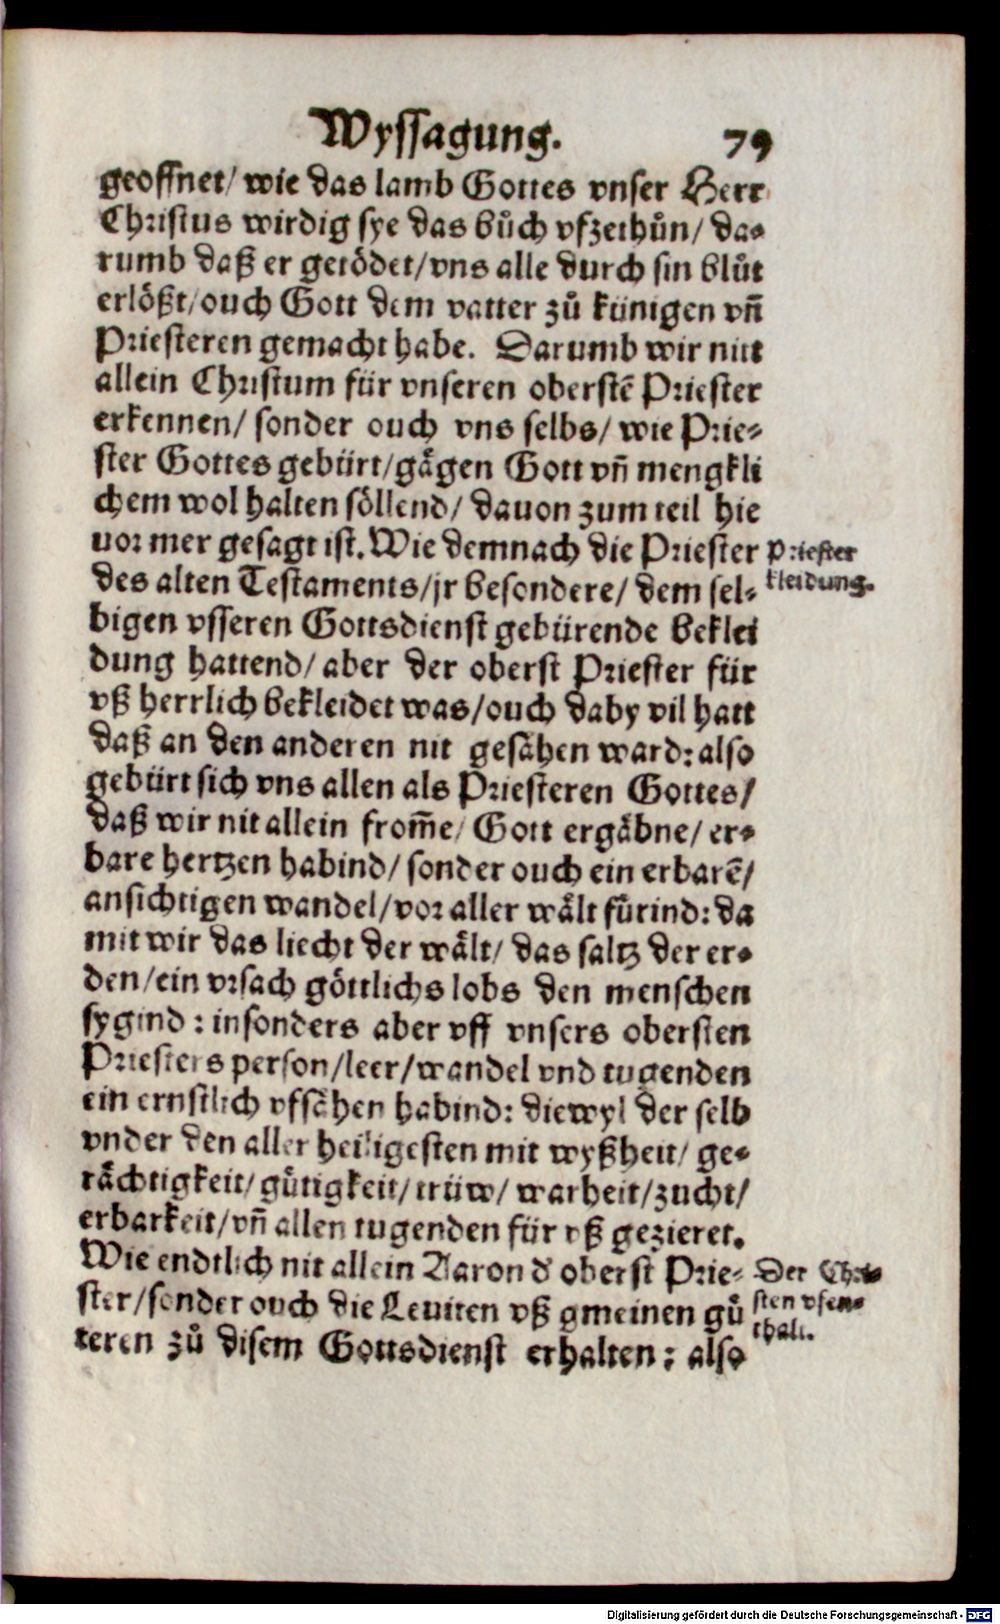 Wyssagung. 79
geoffnet/ wie das lamb Gottes vnser Herr
Christus wirdig sye das bůch vfzethůn/ da⸗
rumb daß er getödet/ vns alle durch sin blůt
erlößt/ ouch Gott dem vatter zů künigen vñ
Priesteren gemacht habe. Darumb wir nitt
allein Christum für vnseren oberstẽ Priester
erkennen/ sonder ouch vns selbs/ wie Prie⸗
ster Gottes gebürt/ gågen Gott vñ mengkli
chem wol halten söllend/ dauon zum teil hie
uor mer gesagt ist. Wie demnach die Priester
des alten Testaments/ jr besondere/ dem sel⸗
bigen vsseren Gottsdienst gebürende beklei
dung hattend/ aber der oberst Priester für
vß herrlich bekleidet was/ ouch daby vil hatt
daß an den anderen nit gesåhen ward: also
gebürt sich vns allen als Priesteren Gottes/
daß wir nit allein from̃e/ Gott ergåbne/ er⸗
bare hertzen habind/ sonder ouch ein erbarẽ/
ansichtigen wandel/ vor aller wålt fürind: da
mit wir das liecht der wålt/ das saltz der er⸗
den/ ein vrsach göttlichs lobs den menschen
sygind: insonders aber vff vnsers obersten
Priesters person/ leer/ wandel vnd tugenden
ein ernstlich vfsåhen habind: diewyl der selb
vnder den aller heiligesten mit wyßheit/ ge⸗
råchtigkeit/ gůtigkeit/ trüw/ warheit/ zucht/
erbarkeit/ vñ allen tugenden für vß gezieret.
Wie endtlich nit allein Aaron d' oberst Prie⸗
ster/ sonder ouch die Leuiten vß gmeinen gů
teren zů disem Gottsdienst erhalten: also
Priester
kleidung.
Der Chri⸗
sten vfen⸗
thalt.
Digitalisierung gefördert durch die Deutsche Forschungsgemeinschaft - DFG